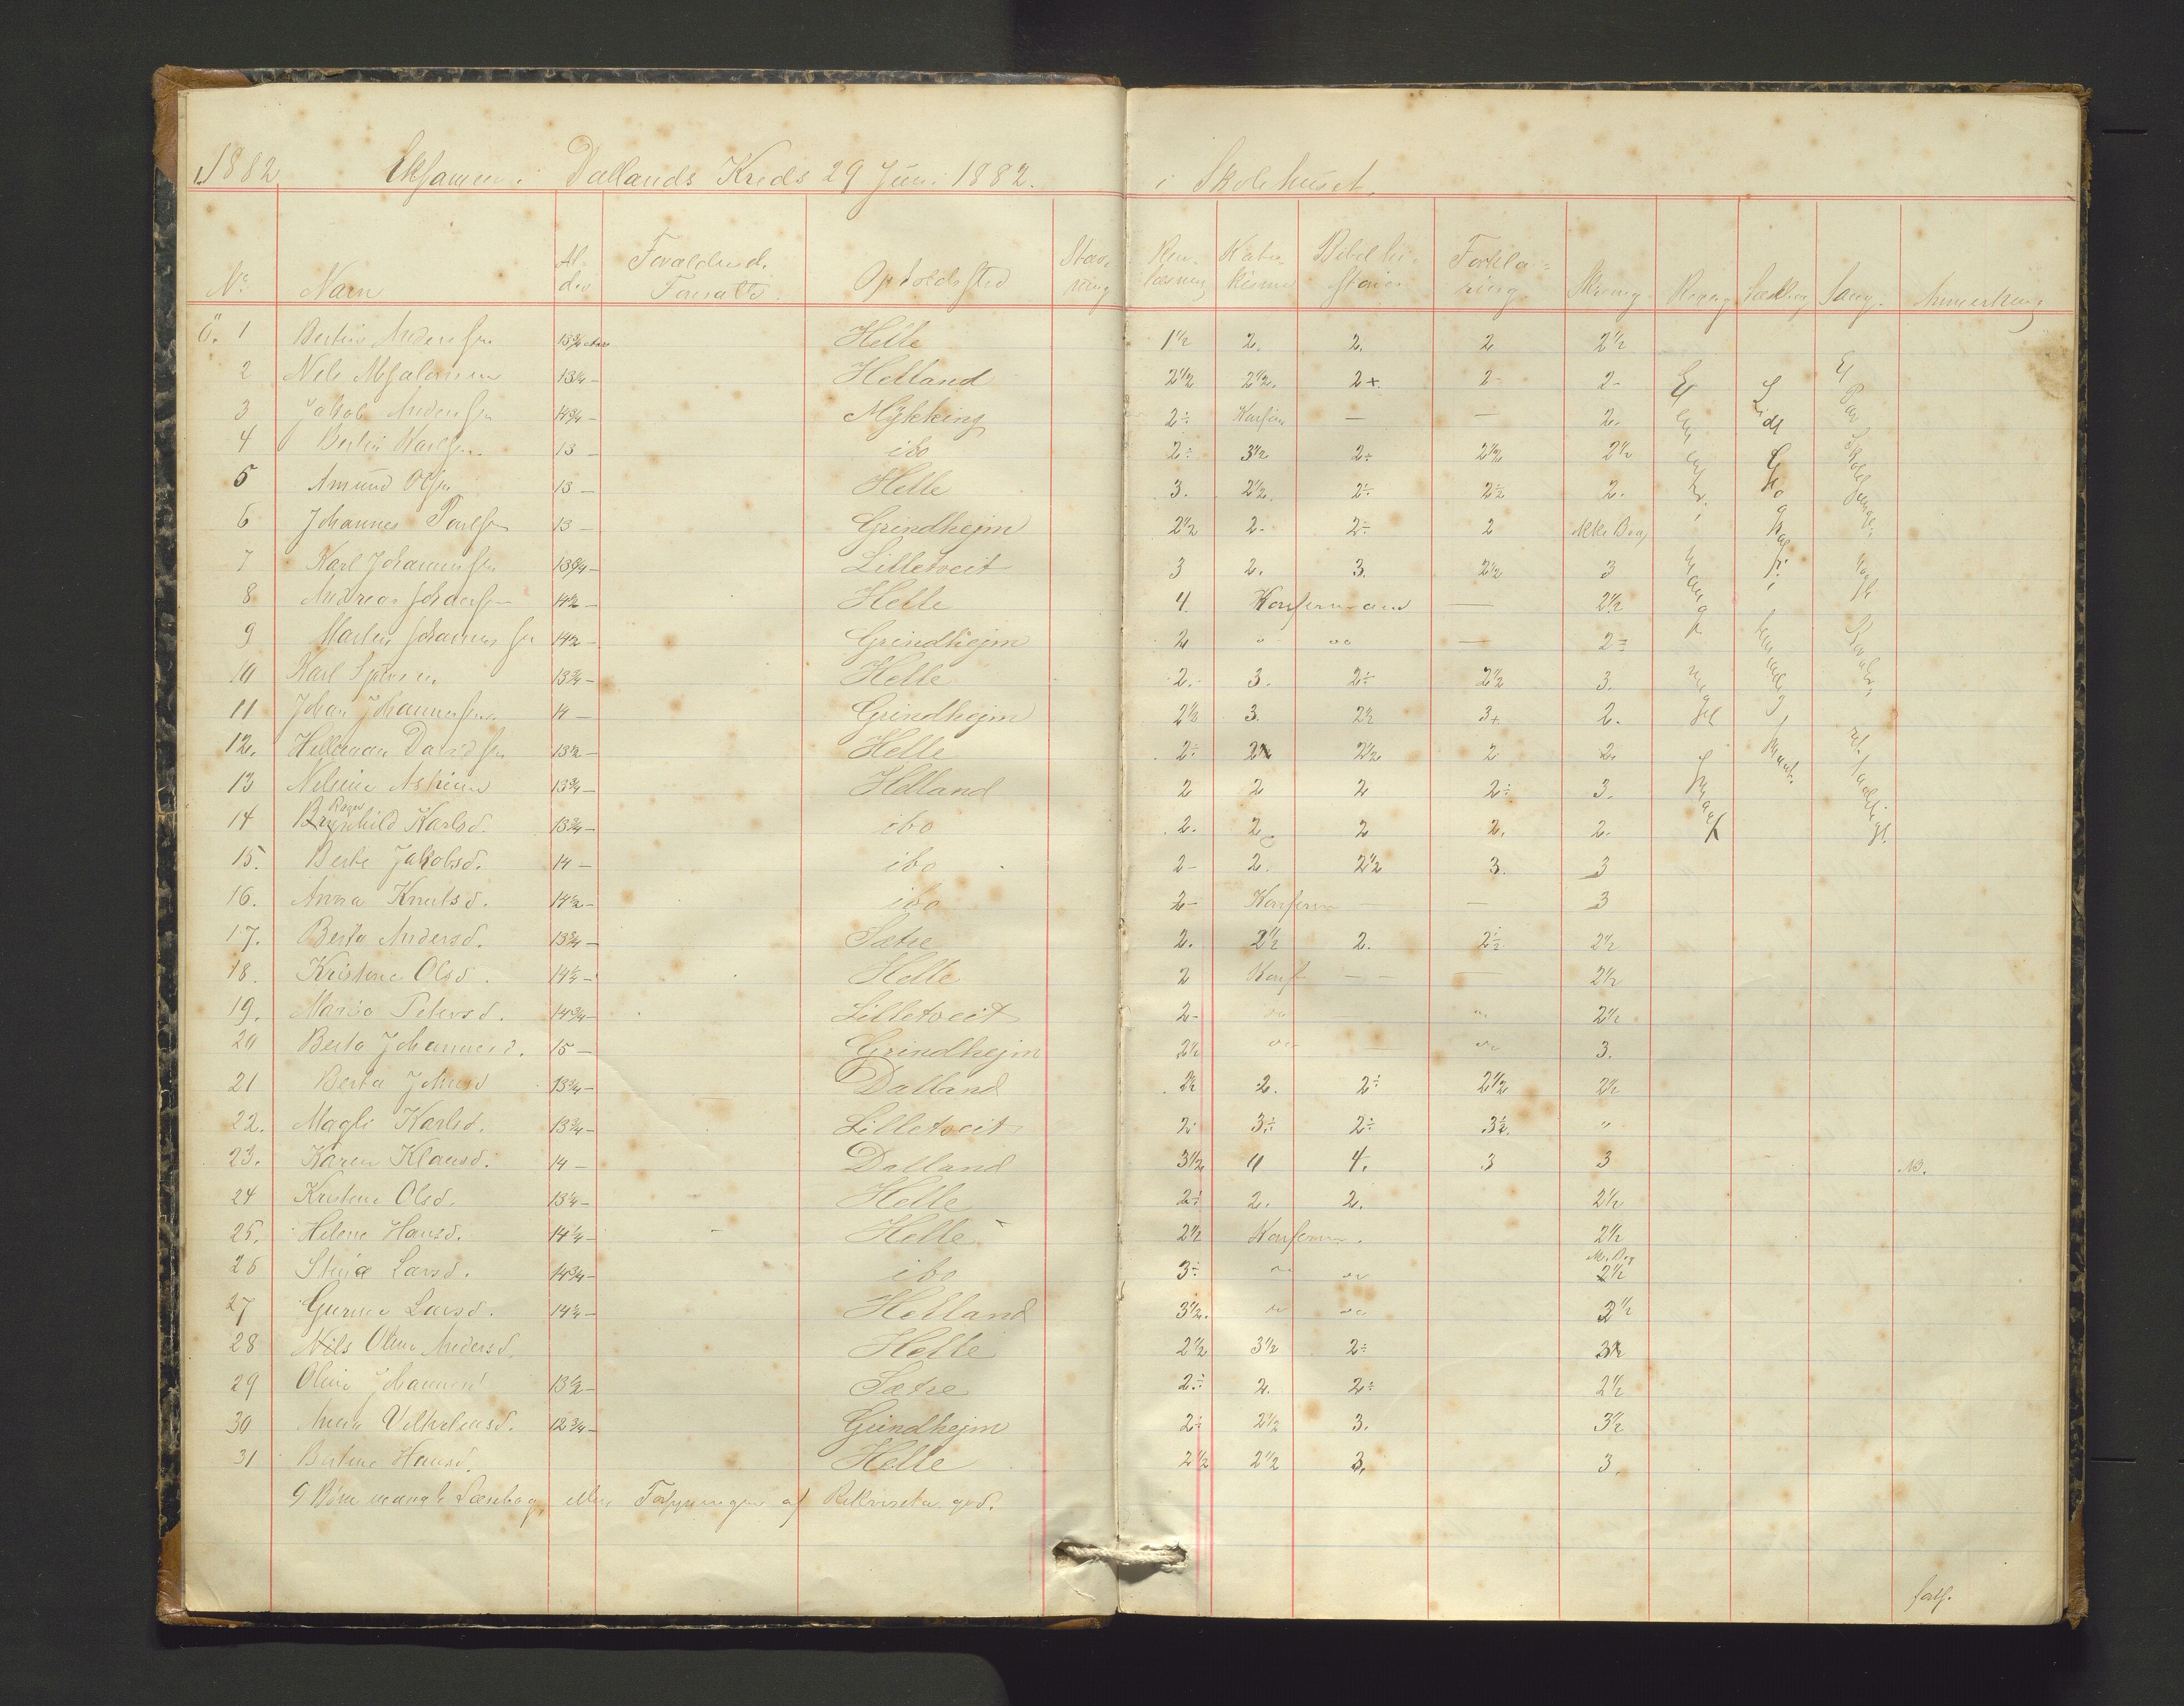 1882 Eksamen i Dallands Kreds 29 Juni 1882. i Skolehuset.
No. Navn Al- der Forældred. Foresatte. Opholdssted Stav- ning Ren- læsning Kate- kisme Bibelhi- storie Forkla- ring. Skrivning Regng Sang. Anmerkning
ö. 1 Bertin Andersen 13 3/4 Helle 1 1/2 2. 2. 2 2 1/2
2 Nels 13 1/4 – Helland 2 1/2 2 1/2. 2+. 2- 2-
3 Jakob Andersen 14 3/4 – Mykking 2÷ Konfirm — — 2.
4 Bertin Karlsen 13 – ibo 2÷ 3 1/2 2÷ 2 1/2 2 1/2
5 Amund Olsen 13 – Helle 3. 2 1/2. 2÷ 2÷ 2.
6 Johannes Poulsen 13 – Grindhejm 2 1/2 2- 2÷ 2 Ikke Bog
7 Karl Johannessen 13 3/4 – Lilletveit 3 2. 3. 2 1/2 3
8 Andreas Johansen 14 1/2 – Helle 4. Konfirmand — 2 1/2
9 Martin Johannessen 14 1/2 – Grindhejm 2 " " — 2÷
10 Karl 13 3/4 – Helle 2. 3. 2÷ 2 1/2 3.
11 Johan Johannessen 14 – Grindhejm 2 1/2 3. 2 1/2 3+ 2.
12. Davidsen 13 1/2 – Helle 2÷ 2 2 1/2 2 2.
13 Nelsine 13 3/4 – Helland 2 2 2 2÷ 3.
14 Ragnhild Karlsd. 13 3/4 – ibo 2. 2 2 2. 2.
15. Berte Jakobsd. 14 – ibo 2- 2. 2 1/2 3. 3
16. Anna Knutsd. 14 1/2 – ibo 2- Konfirm — — 3
17. Berta Andersd. 13 3/4 – Sætre 2. 2 1/2 2. 2÷ 2 1/2
18. Kristine Olsd. 14 1/4 – Helle 2 Konf — — — 2 1/2
19. Maria Petersd. 14 3/4 – Lilletveit 2- " — " 2 1/2
20 Berta Johannesd. 15 – Grindhejm 2 1/2 " — " 3.
21 Berta Johansd 13 3/4 – Dalland 2 1/2 2. 2÷ 2 1/2 2 1/2
22. Magli Karlsd. 13 3/4 – Lilletveit 2 3÷ 2÷ 3÷ "
23. Karen Klausd. 14 – Dalland 3 1/2 4 4. 3 3 NB.
24 Kristine Olsd. 13 1/4 – Helle 2÷ 2. 2. 2 1/2
25. Helene Hansd. 14 1/4 – Helle 2 1/2 Konfirm. 2 1/2
26 Stina Larsd. 14 3/4 – ibo 3÷ " " 2 1/2
27 Gurine Larsd. 14 1/4 – Helland 3 1/2. " " 3 1/2
28 Oline Andersd. Helle 2 1/2 3 1/2 2÷ 3
29 Oline Johannesd 13 1/2 – Sætre 2÷ 2. 2÷ 2 1/2
30 Anna Vilhelmsd. 12 3/4 – Grindhejm 2÷ 2 1/2 3. 3 1/2
31 Bertine Hansd. Helle 2 1/2 2 1/2 3. 3.
9 Børn mangle Læsebog, ellers Forsyningen af Rekvisita god.